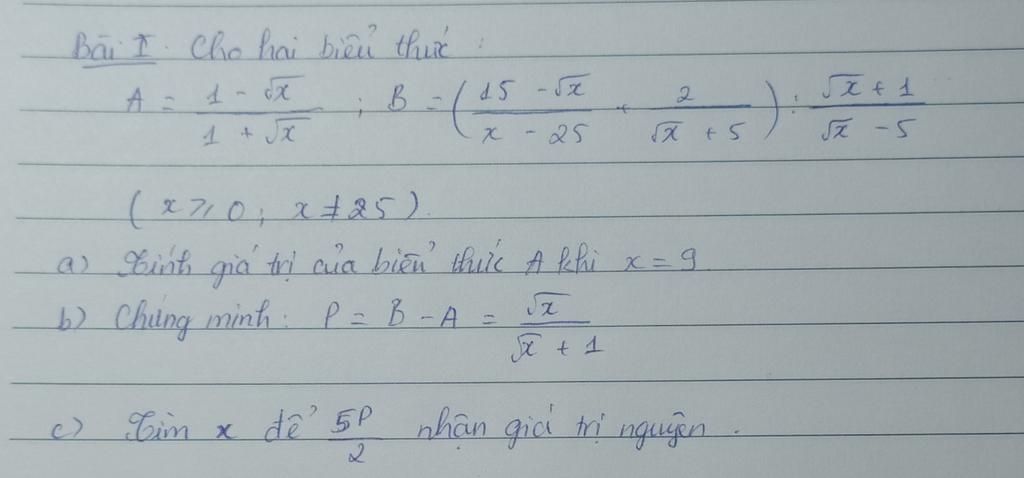 Bài I. Cho hai biểu thức :
A = (1 - √x)/(1 + √x) ; B = ((15 - √x)/(x - 25) + 2/(√x + 5)) : (√x + 1)/(√x - 5)
(x ≥ 0; x ≠ 25).
a) Tính giá trị của biểu thức A khi x = 9
b) Chứng minh: P = B - A = √x/(√x + 1)
c) Tìm x để 5P/2 nhận giá trị nguyên.